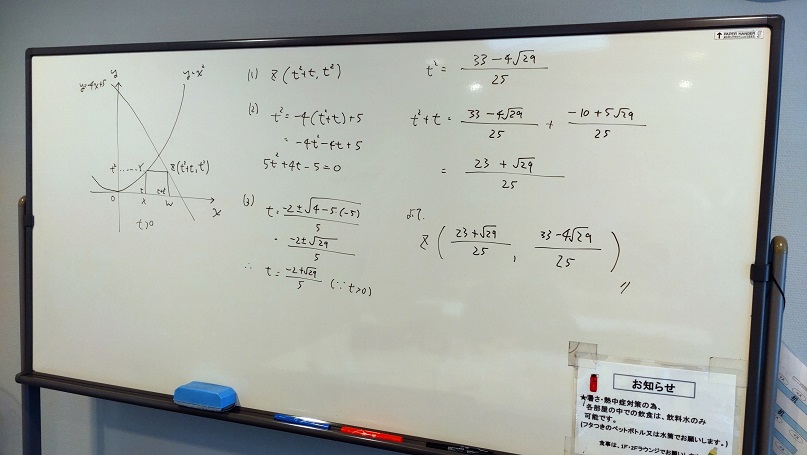 y=-4x+5
y
y=x²
t² Y Z(t²+t, t²)
O t t+t² x
X W
t>0
(1) Z(t²+t, t²)
(2) t²=-4(t²+t)+5
=-4t²-4t+5
5t²+4t-5=0
(3) t=\frac{-2±√4-5(-5)}{5}
=\frac{-2±√29}{5}
∴ t=\frac{-2+√29}{5} (∵t>0)
t²=\frac{33-4√29}{25}
t²+t=\frac{33-4√29}{25}+\frac{-10+5√29}{25}
=\frac{23+√29}{25}
よって.
Z(\frac{23+√29}{25}, \frac{33-4√29}{25})
〃
PAPER HANGER
お知らせ
★暑さ・熱中症対策の為、
各部屋の中での飲食は、飲料水のみ
可能です。
(フタつきのペットボトル又は水筒でお願いします。)
食事は、1F・2Fラウンジでお願い